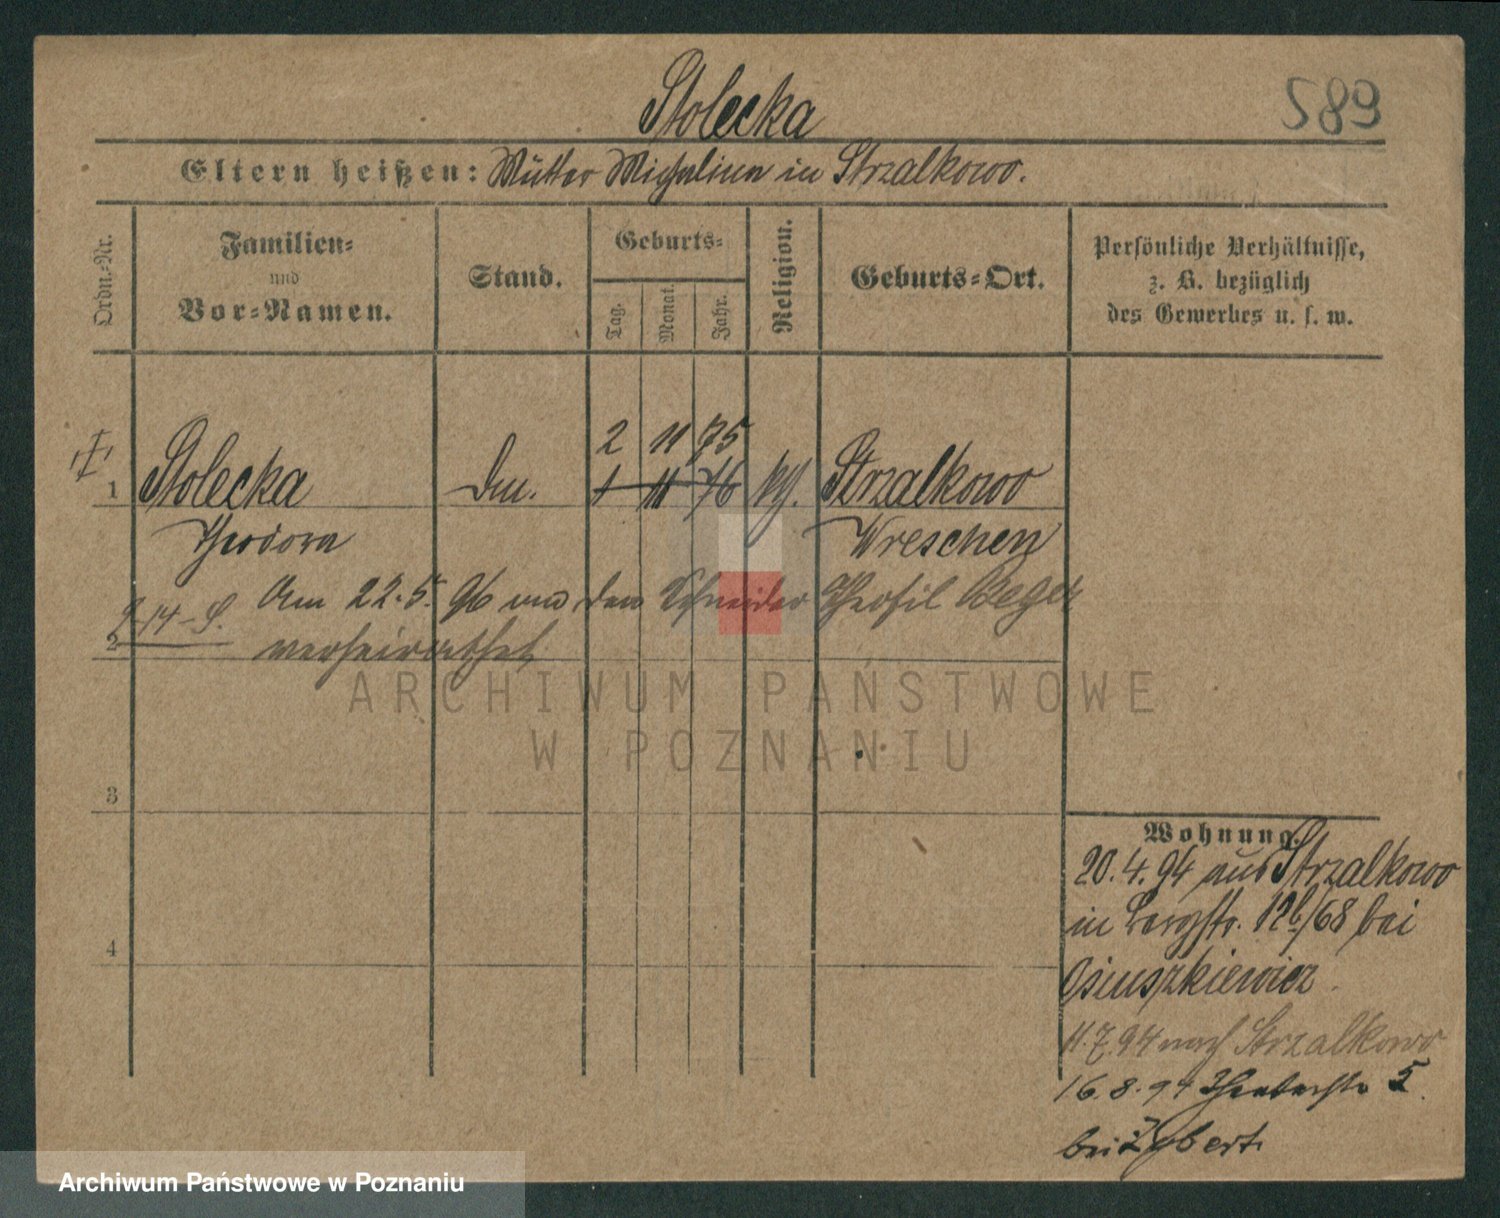 Stolecka
589
Eltern heißen: Mutter Michalina in Strzalkowo.
Ordn.-Nr.
Familien-
und
Vor-Namen.
Stand.
Geburts-
Tag.
Monat.
Jahr.
Religion.
Geburts-Ort.
Persönliche Verhältnisse,
z. B. bezüglich
des Gewerbes u. s. w.
2 11 75
1 Stolecka 1 11 76 kth. Strzalkowo
Theodora Wreschen
Am 22.5.96 mit dem Schneider Theofil
2 verheirathet
ARCHIWUM PAŃSTWOWE
W POZNANIU
3
4
Wohnung.
20.4.94 aus Strzalkowo
in Bergstr. 12b/68 bei
11.7.94 nach Strzalkowo
16.8.94 5
bei
Archiwum Państwowe w Poznaniu